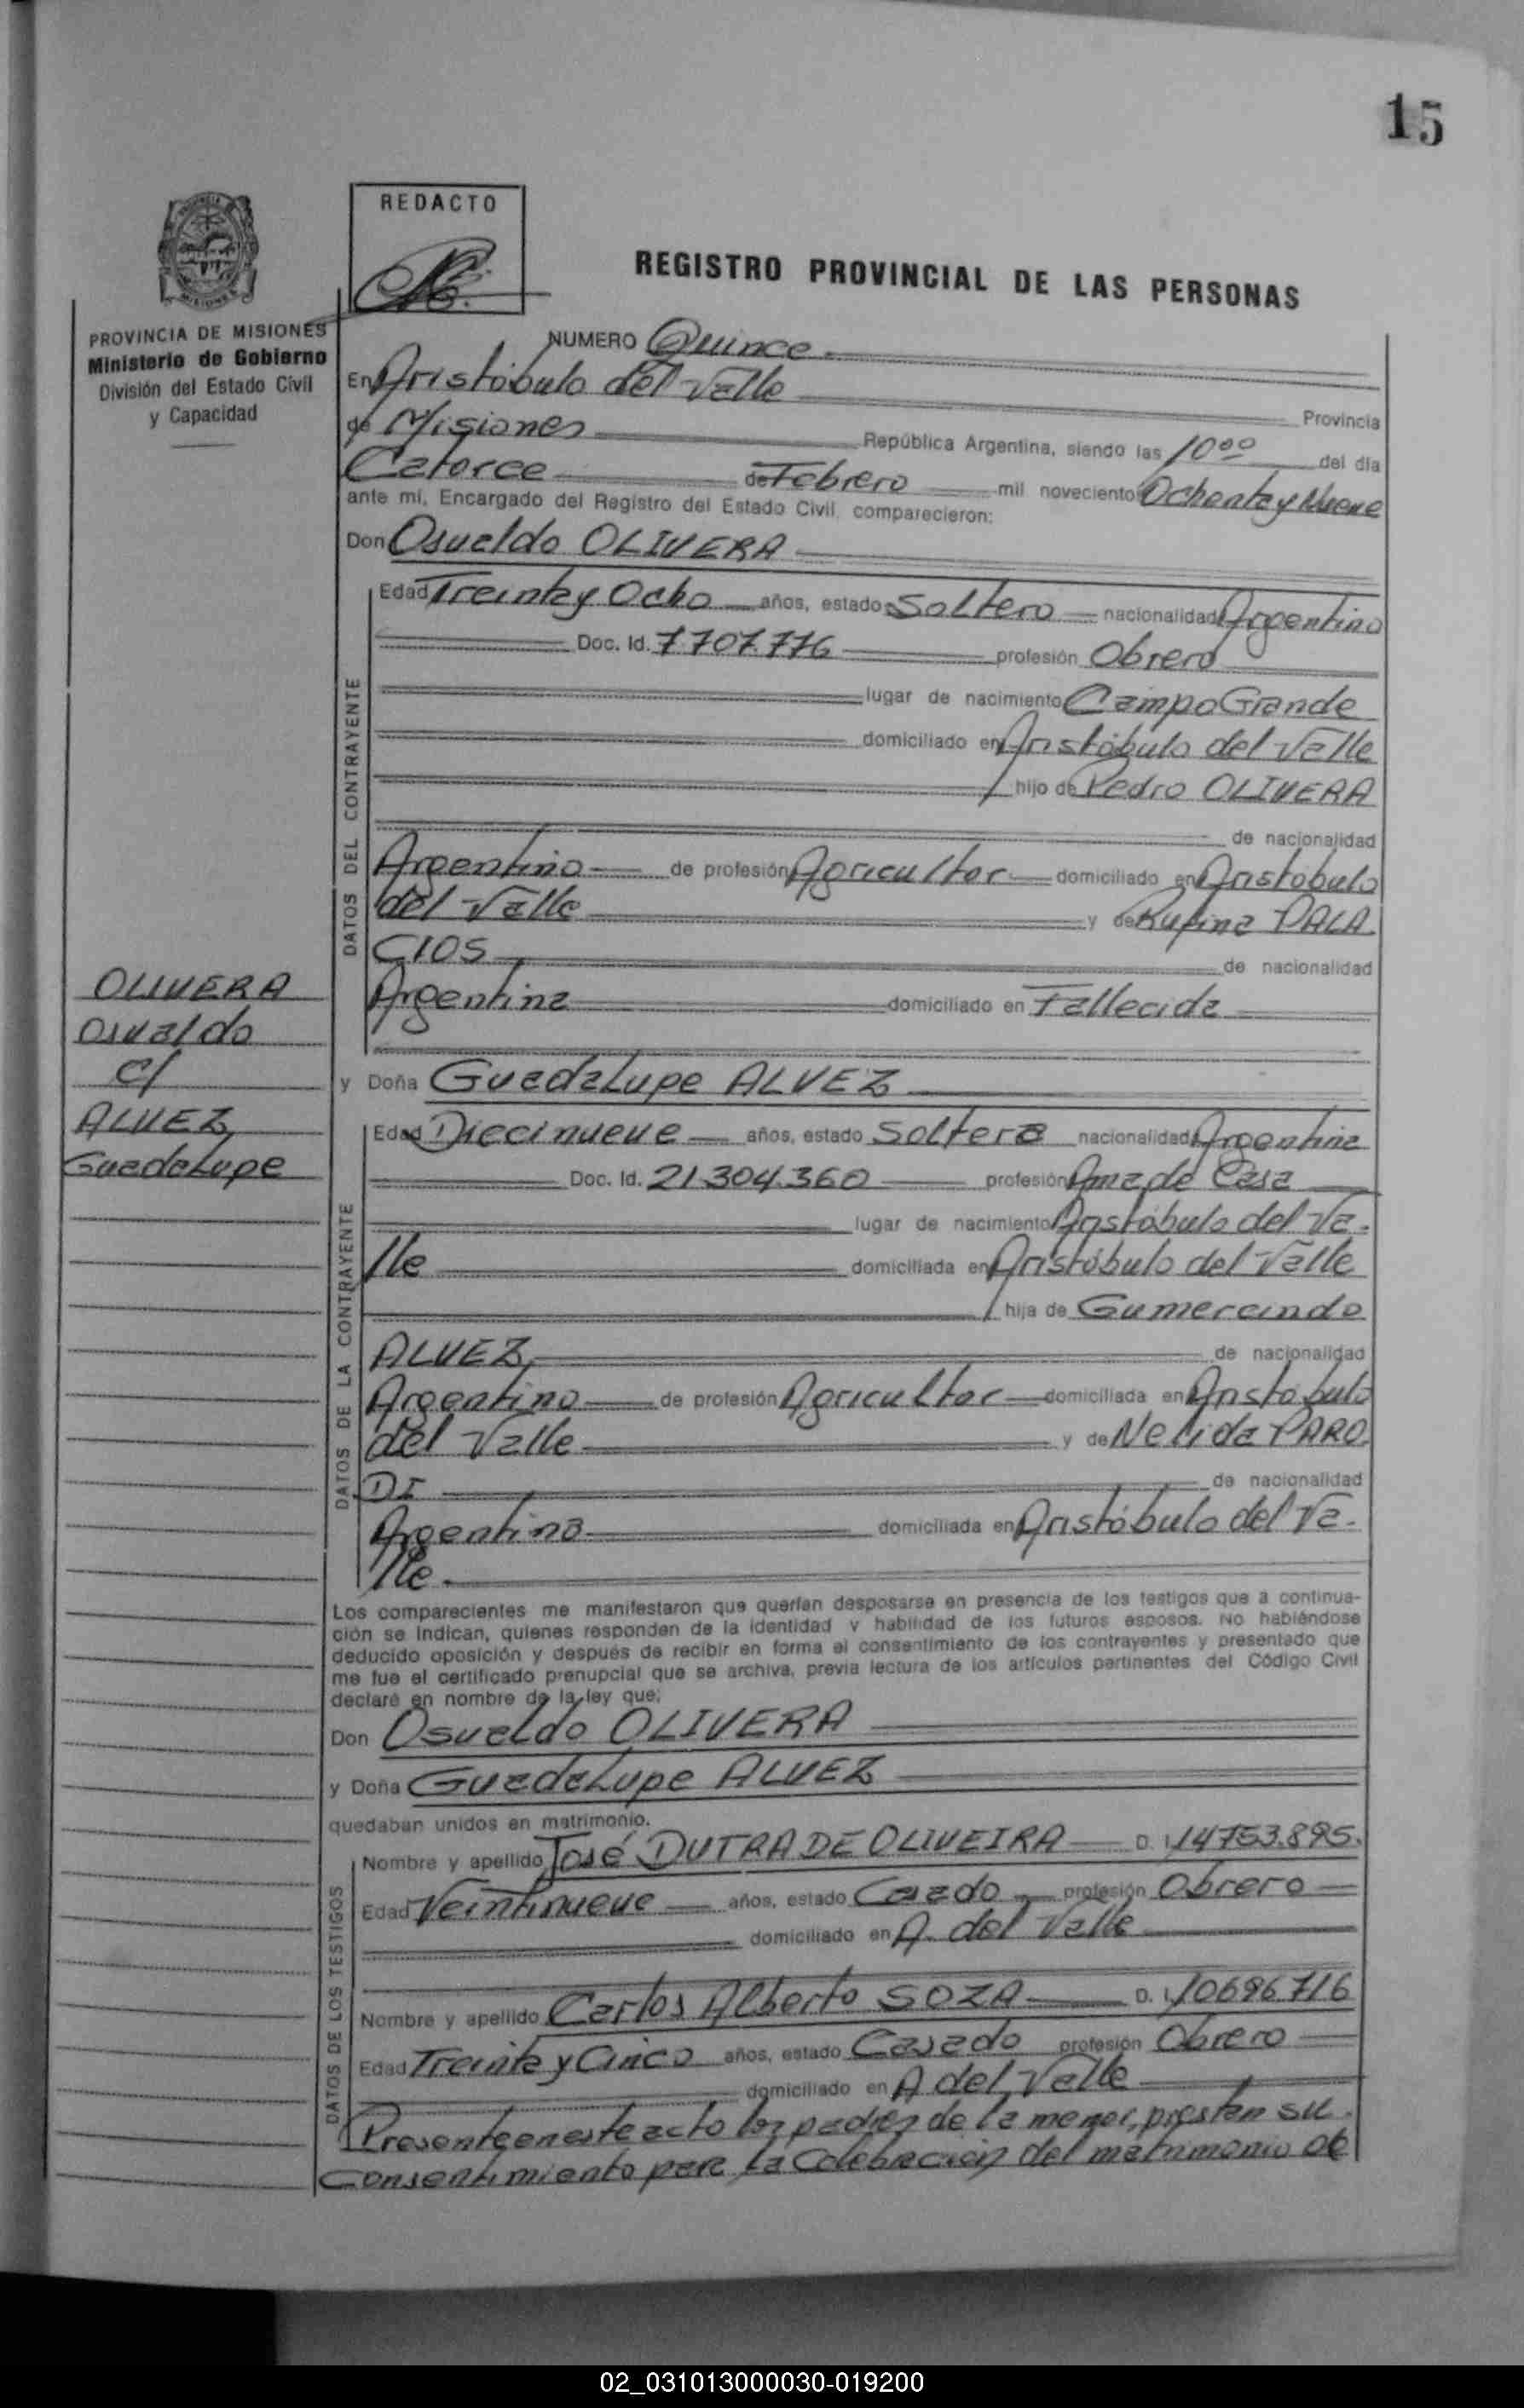 15
REDACTO
REGISTRO PROVINCIAL DE LAS PERSONAS
MISIONES
PROVINCIA DE MISIONES
Ministerio de Gobierno
División del Estado Civil
y Capacidad
NUMERO Quince
En Aristóbulo del Valle
Provincia
de Misiones República Argentina, siendo las 10ºº del día
Catorce de Febrero mil novecientos Ochenta y Nueve
ante mí, Encargado del Registro del Estado Civil, comparecieron:
Don Osvaldo OLIVERA
DATOS DEL CONTRAYENTE
Edad Treinta y Ocho años, estado Soltero nacionalidad Argentino
Doc. Id. 7.707.776 profesión Obrero
lugar de nacimiento Campo Grande
domiciliado en Aristóbulo del Valle
hijo de Pedro OLIVERA
de nacionalidad
Argentino de profesión Agricultor domiciliado en Aristobulo
del Valle y de Rufina PALA
CIOS de nacionalidad
Argentina domiciliado en Fallecida
OLIVERA
Osvaldo
c/
ALVEZ
Guadalupe
y Doña Guadalupe ALVEZ
DATOS DE LA CONTRAYENTE
Edad Diecinueve años, estado Soltera nacionalidad Argentina
Doc. Id. 21.304.360 profesión Ama de Casa
lugar de nacimiento Aristóbulo del Va-
lle domiciliada en Aristóbulo del Valle
hija de Gumercindo
ALVEZ de nacionalidad
Argentino de profesión Agricultor domiciliada en Aristobulo
del Valle y de Nelida PARO
DI de nacionalidad
Argentina domiciliada en Aristóbulo del Va-
lle.
Los comparecientes me manifestaron que querían desposarse en presencia de los testigos que a continua-
ción se indican, quienes responden de la identidad y habilidad de los futuros esposos. No habiéndose
deducido oposición y después de recibir en forma el consentimiento de los contrayentes y presentado que
me fue el certificado prenupcial que se archiva, previa lectura de los artículos pertinentes del Código Civil
declaré en nombre de la ley que:
Don Osvaldo OLIVERA
y Doña Guadalupe ALVEZ
quedaban unidos en matrimonio.
DATOS DE LOS TESTIGOS
Nombre y apellido José DUTRA DE OLIVEIRA D. I. 14753.895.
Edad Veintinueve años, estado Casado profesión Obrero
domiciliado en A. del Valle
Nombre y apellido Carlos Alberto SOZA D. I. 10696716
Edad Treinta y Cinco años, estado Casado profesión Obrero
domiciliado en A del Valle
Presente en este acto los padres de la menor, prestan su
Consentimiento para la Celebración del matrimonio de
02_031013000030-019200